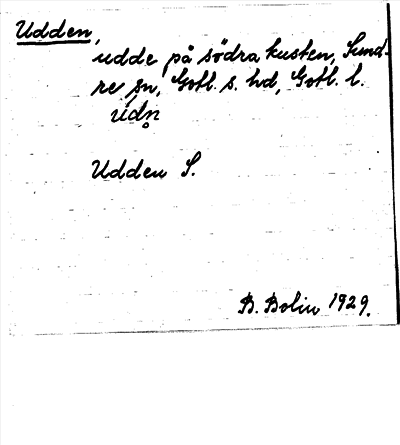 Udden,
udde på södra kusten, Sund-
re sn, Gotl. s. hd, Gotl. l.
údn̥
Udden S.
B. Bolin 1929.